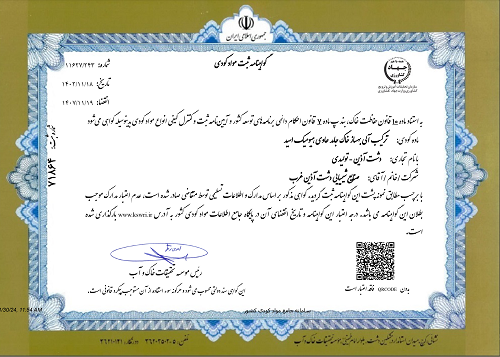 جمهوری اسلامی ایران
گواهینامه ثبت مواد کودی
شماره: ۱۱۶۲۷/۲۴۳
تاریخ: ۱۴۰۲/۱۱/۱۸
انقضاء: ۱۴۰۷/۱۱/۱۹
جهاد
کشاورزی
۷۱۸۶۴
به استناد ماده ۱۵ قانون حفاظت خاک، بند پ ماده ۷ قانون احکام دائمی برنامه‌های توسعه کشور و آیین‌نامه ثبت و کنترل کیفی انواع مواد کودی بدینوسیله گواهی می‌شود
ماده کودی: ترکیب آلی بهساز خاک جامد حاوی هیومیک اسید
با نام تجاری: دشت آذین - تولیدی
شرکت / خانم / آقای: صنایع شیمیایی دشت آذین غرب
با برچسب مطابق نمونه پشت این گواهینامه ثبت گردید. گواهی مذکور بر اساس مدارک و اطلاعات تسلیمی توسط متقاضی صادر شده است. عدم اعتبار مدارک موجب
بطلان این گواهینامه می باشد. درجه اعتبار این گواهینامه و تاریخ انقضای آن در پایگاه جامع اطلاعات مواد کودی کشور به آدرس www.kswri.ir بارگذاری شده
است.
رئیس موسسه تحقیقات خاک و آب
این گواهی سند دولتی محسوب می شود و هرگونه سوء استفاده از آن مستوجب پیگرد قانونی است.
بدون QRCODE فاقد اعتبار است
/30/24, 11:54 AM
سامانه جامع مواد کودی کشور